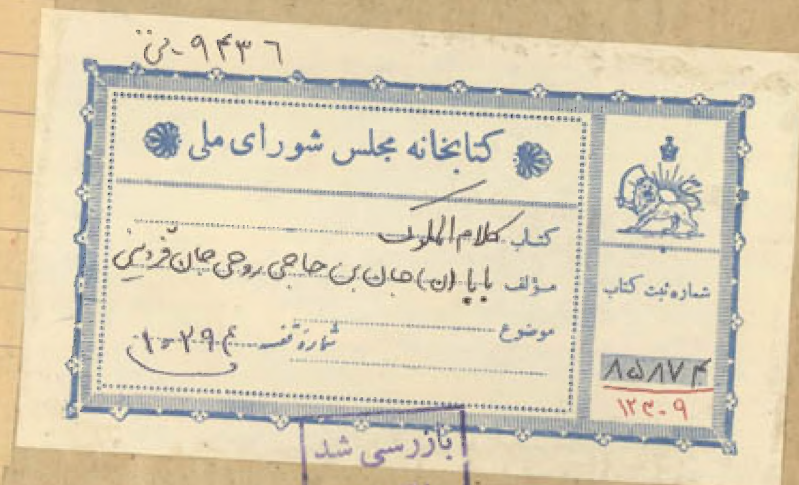 ۹۴۳۶ - ف
کتابخانه مجلس شورای ملی
کتاب کلام الملوک
مؤلف بابا (ن) جان بن حاجی روحی جان قزوینی
موضوع
شماره قفسه ۱۰۲۹۴
شماره ثبت کتاب
۸۵۸۷۴
۱۲۴۰۹
بازرسی شد